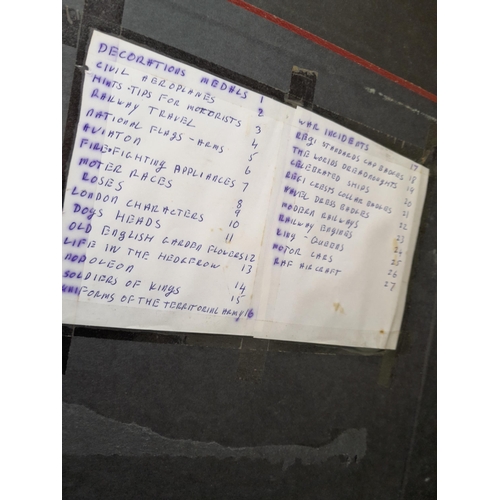 DECORATIONS MEDALS 1
CIVIL AEROPLANES 2
HINTS-TIPS FOR MOTORISTS 3
RAILWAY TRAVEL 4
NATIONAL FLAGS-ARMS 5
AVIATON 6
FIRE-FIGHTING APPLIANCES 7
MOTER RACES 8
ROSES 9
LONDON CHARACTERS 10
DOGS HEADS 11
OLD ENGLISH GARDEN FLOWERS 12
LIFE IN THE HEDEROW 13
NAPOLEON 14
SOLDIERS OF KINGS 15
UNIFORMS OF THE TERRITORIAL ARMY 16
WAR INCIDENTS 17
REGI STANDARDS CAP BADGES 18
THE WORLDS DREADNOUGHTS 19
CELEBRATED SHIPS 20
REGI CRESTS COLLAR BADGES 21
NAVEL DRESS BADGES 22
MODERN RAILWAYS 23
RAILWAY ENGINES 24
KING - QUEENS 25
MOTOR CARS 26
RAF AIRCRAFT 27